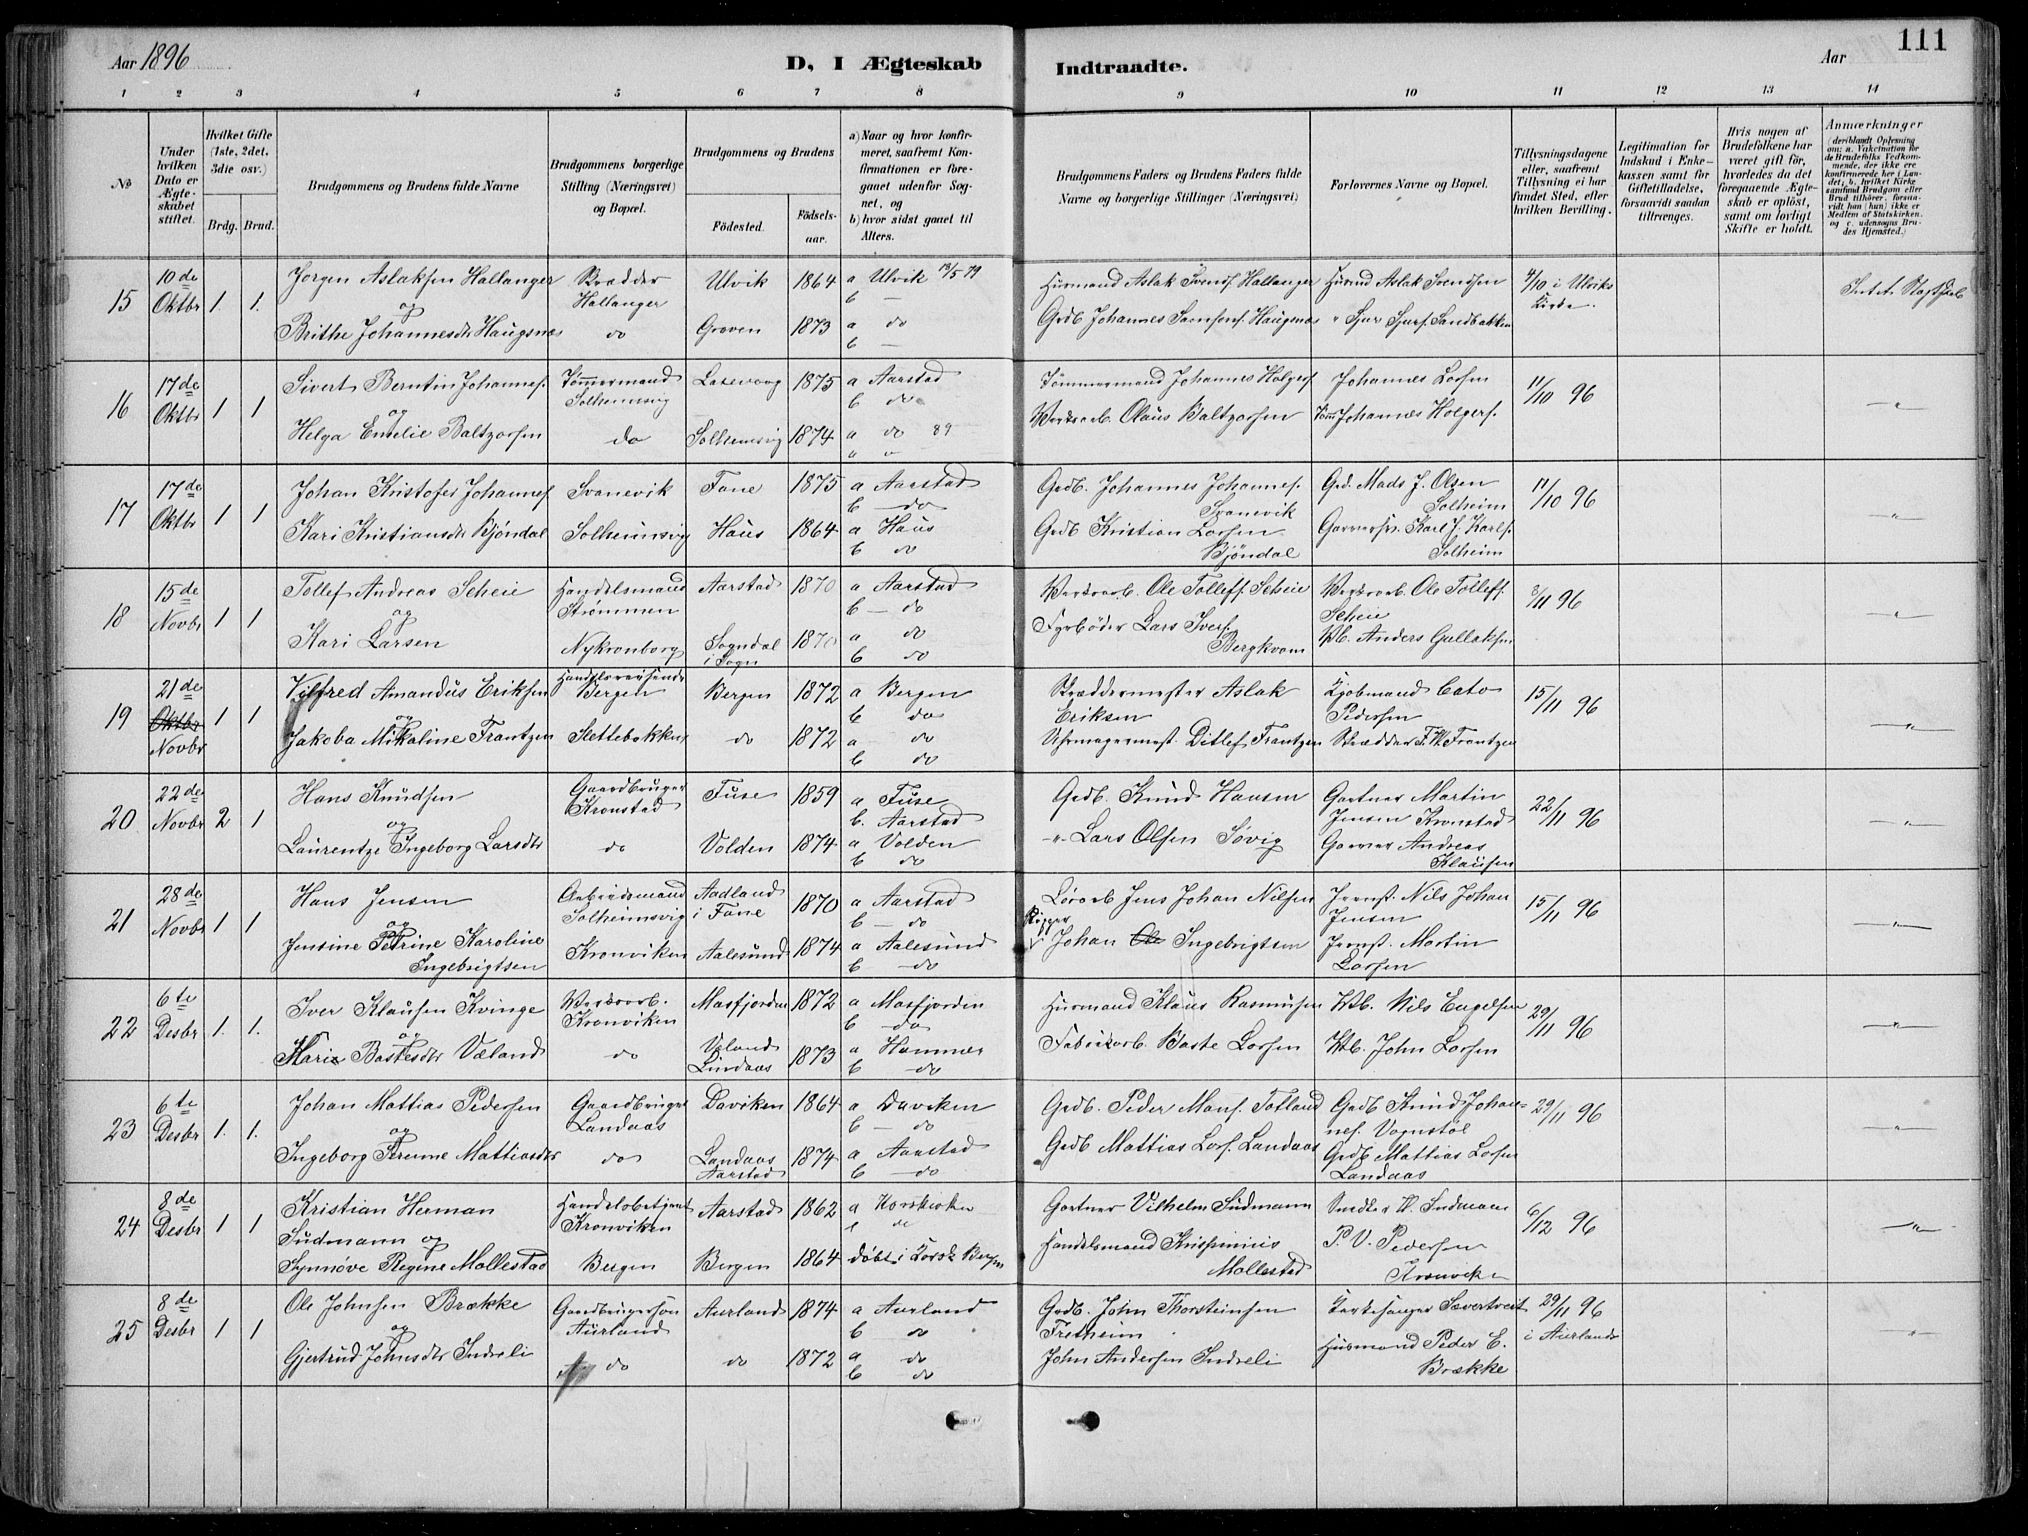 Aar 1896
D, I Ægteskab
Indtraadte.
Aar
111
1 2 3 4 5 6 7 8 9 10 11 12 13 14
No
Under hvilken Dato er Ægteskabet stiftet.
Hvilket Gifte (1ste, 2det, 3die osv.)
Brdg. Brud.
Brudgommens og Brudens fulde Navne
Brudgommens borgerlige Stilling (Næringsvei) og Bopæl.
Brudgommens og Brudens
Fødested.
Fødselsaar.
a) Naar og hvor konfirmeret, saafremt Konfirmationen er foregaaet udenfor Sognet, og
b) hvor sidst gaaet til Alters.
Brudgommens Faders og Brudens Faders fulde Navne og borgerlige Stillinger (Næringsvei)
Forlovernes Navne og Bopæl.
Tillysningsdagene eller, saafremt Tillysning ei har fundet Sted, efter hvilken Bevilling.
Legitimation for Indskud i Enkekassen samt for Giftetilladelse, forsaavidt saadan tiltrænges.
Hvis nogen af Brudefolkene har været gift før, hvorledes da det foregaaende Ægteskab er opløst, samt om lovligt Skifte er holdt.
Anmærkninger (deriblandt Oplysning om: a. Vakcination for de Brudefolks Vedkommende, der ikke ere konfirmerede her i Landet; b. hvilket Kirkesamfund Brudgom eller Brud tilhører, forsaavidt han (hun) ikke er Medlem af Statskirken, og c. udensogns Brudes Hjemsted.)
15 10de Oktbr 1. 1. Jørgen Aslaksen Hallanger Skrædder Hallanger Ulvik 1864 a Ulvik 13/5 79 b — Husmand Aslak Svends. Hallanger Husmd Aslak Svendsen 4/10 i Ulviks Kirke Intet Slagtskab
og
Brithe Johannesdtr Haugsnæs do Graven 1873 a do b — Grdb. Johannes Samsons. Haugsnæs " Sjur Sjurs. Sandbakken
16 17de Oktbr 1 1 Sivert Berntin Johannes. Tømmermand Solheimsvig Laxevaag 1875 a Aarstad b do Tømmermand Johannes Holgers. Johannes Larsen 11/10 96 "
og
Helga Emelie Baltzersen do Solheimsvig 1874 a do 89 Verksarb. Olaus Baltzersen Tøm Johannes Holgers.
17 17de Oktbr 1 1 Johan Kristofer Johannes. Svanevik Fane 1875 a Aarstad b do Grdb. Johannes Johannes. Svanevik Grd. Mads J. Olsen Solheim 11/10 96 "
Kari Kristiansdtr Bjøndal Solheimsvig Haus 1864 a Haus b do Grdb Kristian Larsen Bjøndal Garversv. Karl J. Karls. Solheim
18 15de Novbr 1 1 Tollef Andreas Scheie Handelsmand Strømmen Aarstad 1870 a Aarstad b — do Verksarb. Ole Tolleffs. Scheie Verksarb. Ole Tolleffs. Scheie 8/11 96 "
og
Kari Larsen Nykronborg Sogndal i Sogn 1870 a do b do Fyrbøder Lars Ivers. Bergkvam Vb. Anders Gullaksen
19 21de Oktbr Novbr 1 1 Vilfred Amandus Eriksen Handelsreisende Bergen Bergen 1872 a Bergen b do Skræddermester Aslak Eriksen Kjøbmand Cato Pedersen 15/11 96 "
og
Jakoba Mikaline Frantzen Slettebakken do 1872 a do b do Uhrmagermest. Ditlef Frantzen Skrædder F. W. Frantzen
20 22de Novbr 2 1 Hans Knudsen Gaardbruger Kronstad Fuse 1859 a Fuse b. Aarstad Grdb. Knud Hansen Gartner Martin Jensen Kronstad 22/11 96 "
og
Laurentze Ingeborg Larsdtr do Volden 1874 a Volden b do " Lars Olsen Søvig Garver Andreas Klausen
21 28de Novbr 1 1 Hans Jensen Arbeidsmand Solheimsvig Aadland i Fane 1870 a Aarstad b — do Jens Johan Nilsen Jernst. Nils Johan Jensen 15/11 96 "
og
Jensine Petrine Karoline Ingebrigtsen Kronviken Aalesund 1874 a Aalesund b — do Rigger Johan Ole Ingebrigtsen Jernst. Martin Larsen
22 6te Desbr 1. 1. Iver Klausen Kvinge Verksarb. Kronviken Masfjorden 1872 a Masfjorden b — do Husmand Klaus Rasmusen Vb. Nils Engelsen 29/11 96 "
og
Marie Bastesdtr Væland do Veland Lindaas 1873 a Hammer b do Fabrikarb. Baste Larsen Vb. John Larsen
23 6te Desbr 1. 1. Johan Mattias Pedersen Gaardbruger Landaas Daviken 1864 a Daviken b — do Grdb. Peder Mons. Totland Grdb Knud Johannes. Vognstøl 29/11 96 "
og
Ingeborg Mattiasdtr do Landaas Aarstad 1874 a Aarstad b — do Grdb Mattias Lars. Landaas Grdb Mattias Larsen Landaas
24 8de Desbr 1 1 Kristian Herman Sudmann og Handelsbetjent Kronviken Aarstad 1862 a Korskirken b do Gartner Vilhelm Sudmann Snedker W. Sudmann 6/12 96 "
Synnøve Regine Mollestad Bergen Bergen 1864 døbt i Korsk Bergen Handelsmand Krispinius Mollestad P. V. Pedersen Kronviken
25 8de Desbr 1 1 Ole Johnsen Brække Gaardbrugersøn Aurland Aurland 1874 a Aurland b do Grdb. John Thorsteinsen Fretheim Kirkesanger Sævertveit 29/11 96 i Aurland "
og
Gjertrud Johnsdtr Indreli do do 1872 a do b do John Andersen Indreli Husmand Peder E. Brække